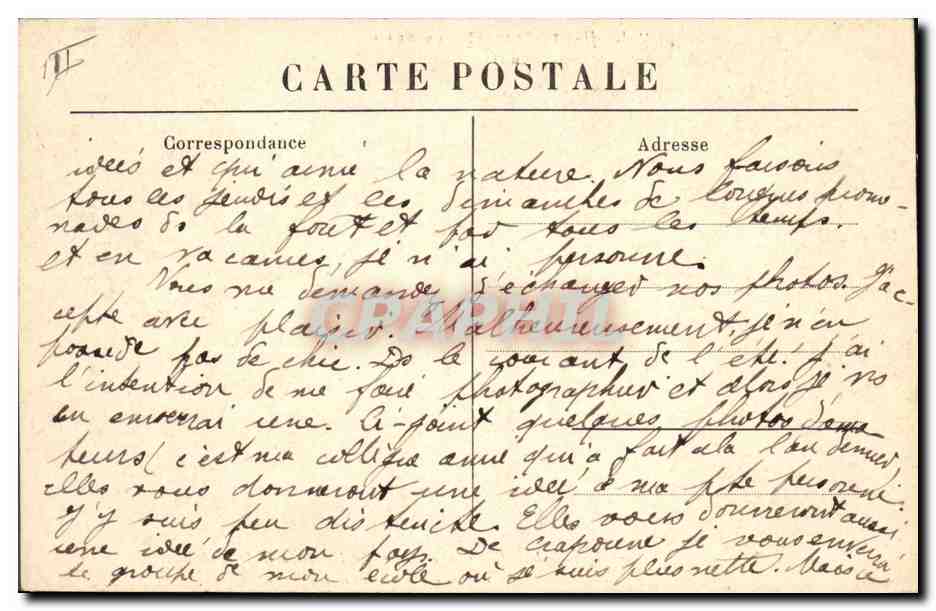 II
CARTE POSTALE
Correspondance
Adresse
idées et qui aime la nature. Nous faisons
tous les jeudis et les dimanches de longues prome-
nades ds la forêt et par tous les temps.
et en vacances, je n'ai personne.
Vous me demandez d'échanger nos photos. J'ac-
cepte avec plaisir. Malheureusement, je n'en
possède pas de chic. Ds le courant de l'été j'ai
l'intention de me faire photographier et alors je vs
en enverrai une. Ci-joint quelques photos d'ama
teurs (c'est ma collègue amie qui a fait cela l'an dernier,
elles vous donneront une idée de ma pte personne.
J'y suis peu distincte. Elles vous donneront aussi
une idée de mon pays. De Craponne je vous enverrai
le groupe de mon école où je suis plus nette. Mais ce
CPAPHIL